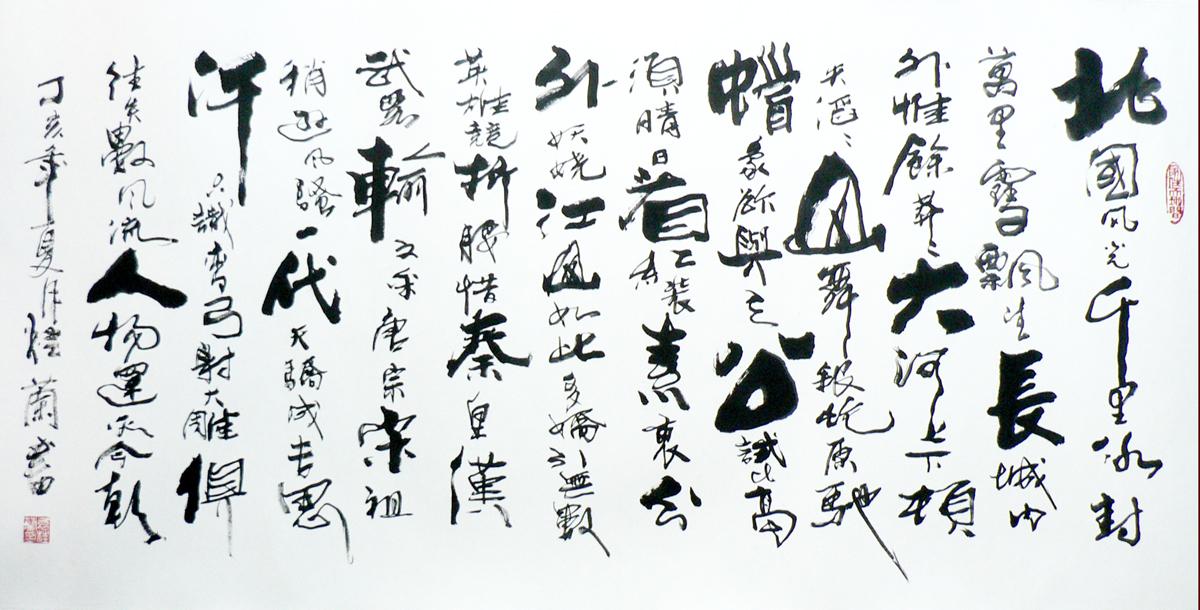 北國风光千里冰封
萬里雪飄望長城内
外惟餘莽々大河上下頓
失滔々山舞銀蛇原馳
蠟象欲與天公試比高
須晴日看紅装素裹分
外妖娆江山如此多嬌引無數
英雄競折腰惜秦皇漢
武略輸文采唐宗宋祖
稍遜风騷一代天驕成吉思
汗只識彎弓射大雕俱
往矣數风流人物還看今朝
丁亥年夏月悟蘭書